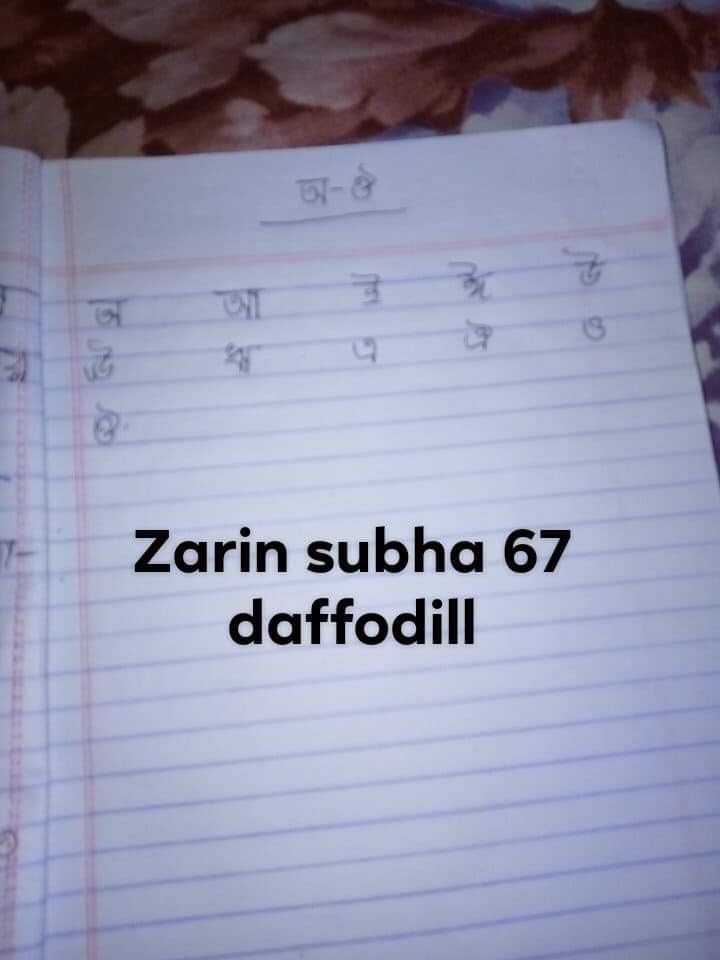 অ-ঔ
অ আ ই ঈ উ
ঊ ঋ এ ঐ ও
ঔ
Zarin subha 67
daffodill